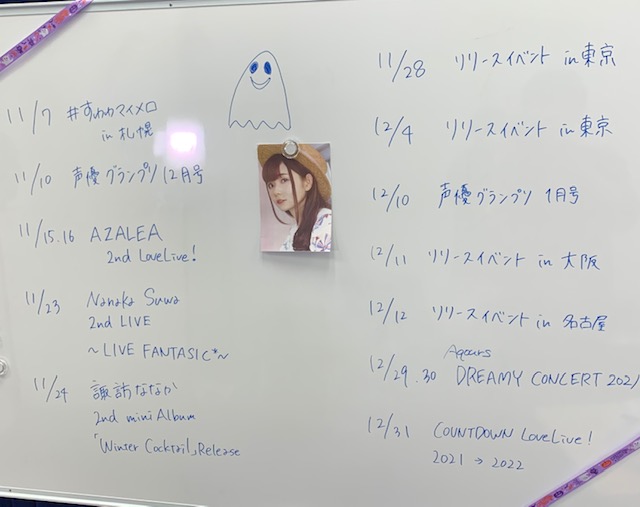 11/7 #すわわマイメロ
in 札幌
11/10 声優グランプリ 12月号
11/15.16 AZALEA
2nd LoveLive!
11/23 Nanaka Suwa
2nd LIVE
~LIVE FANTASIC*~
11/24 諏訪ななか
2nd mini Album
「Winter Cocktail」Release
11/28 リリースイベント in 東京
12/4 リリースイベント in 東京
12/10 声優グランプリ 1月号
12/11 リリースイベント in 大阪
12/12 リリースイベント in 名古屋
Aqours
12/29.30 DREAMY CONCERT 2021
12/31 COUNTDOWN LoveLive!
2021 → 2022